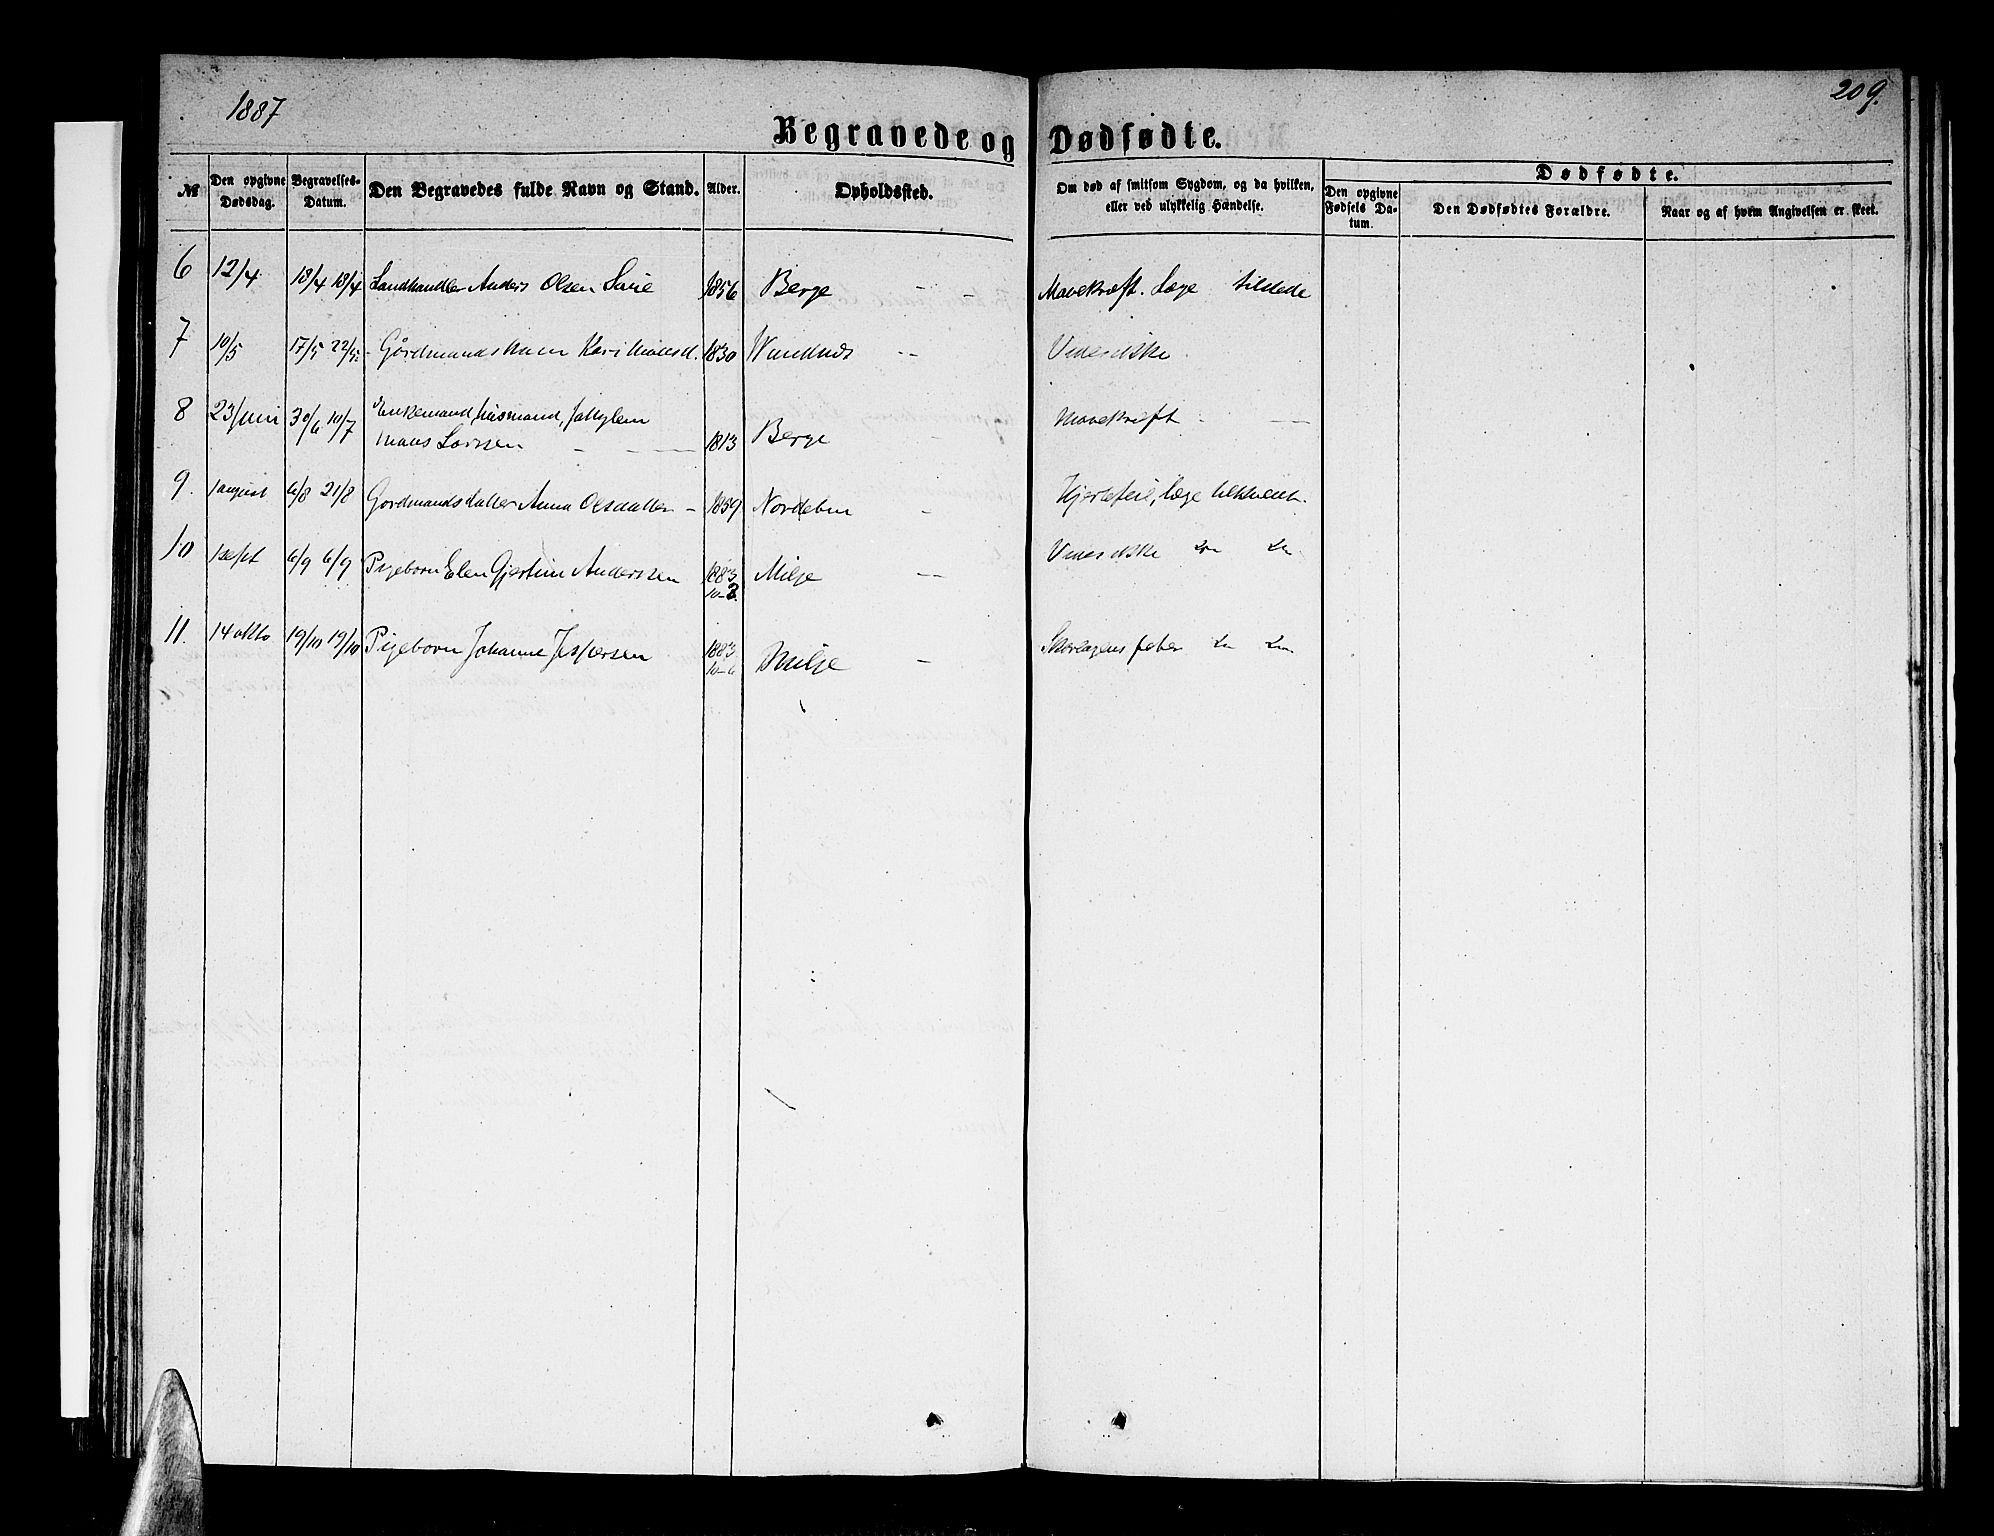 1887
209.
Begravede og Dødfødte.
№
Den opgivne Dødsdag.
Begravelses-Datum.
Den Begravedes fulde Navn og Stand.
Alder.
Opholdssted.
Om død af smitsom Sygdom, og da hvilken, eller ved ulykkelig Hændelse.
Dødfødte.
Den opgivne Fødsels Datum.
Den Dødfødtes Forældre.
Naar og af hvem Angivelsen er skeet.
6 12/4 18/4 18/4 Landhandler Anders Olsen 1856 Berge - - Mavekræft. Læge tilstede
7 10/5 17/5 22/5 Gårdmandskone Kari 1830 -
8 23 juni 30/6 10/7 Enkemand, husmand,
Larssen - 1813 Berge - Mavekræft -
9. 1 august 6/8 21/8 Gårdmandsdatter Anna Olsdatter - 1859 - Hjertefeil, læge
10 1 sept 6/9 6/9 Pigebarn Elen Gjertine Anderssen 1883 Milje -
10-3.
11. 14 okto 19/10 19/10 Pigebarn Johanne Jespersen 1883 Milje - Skarlagensfeber
10-6